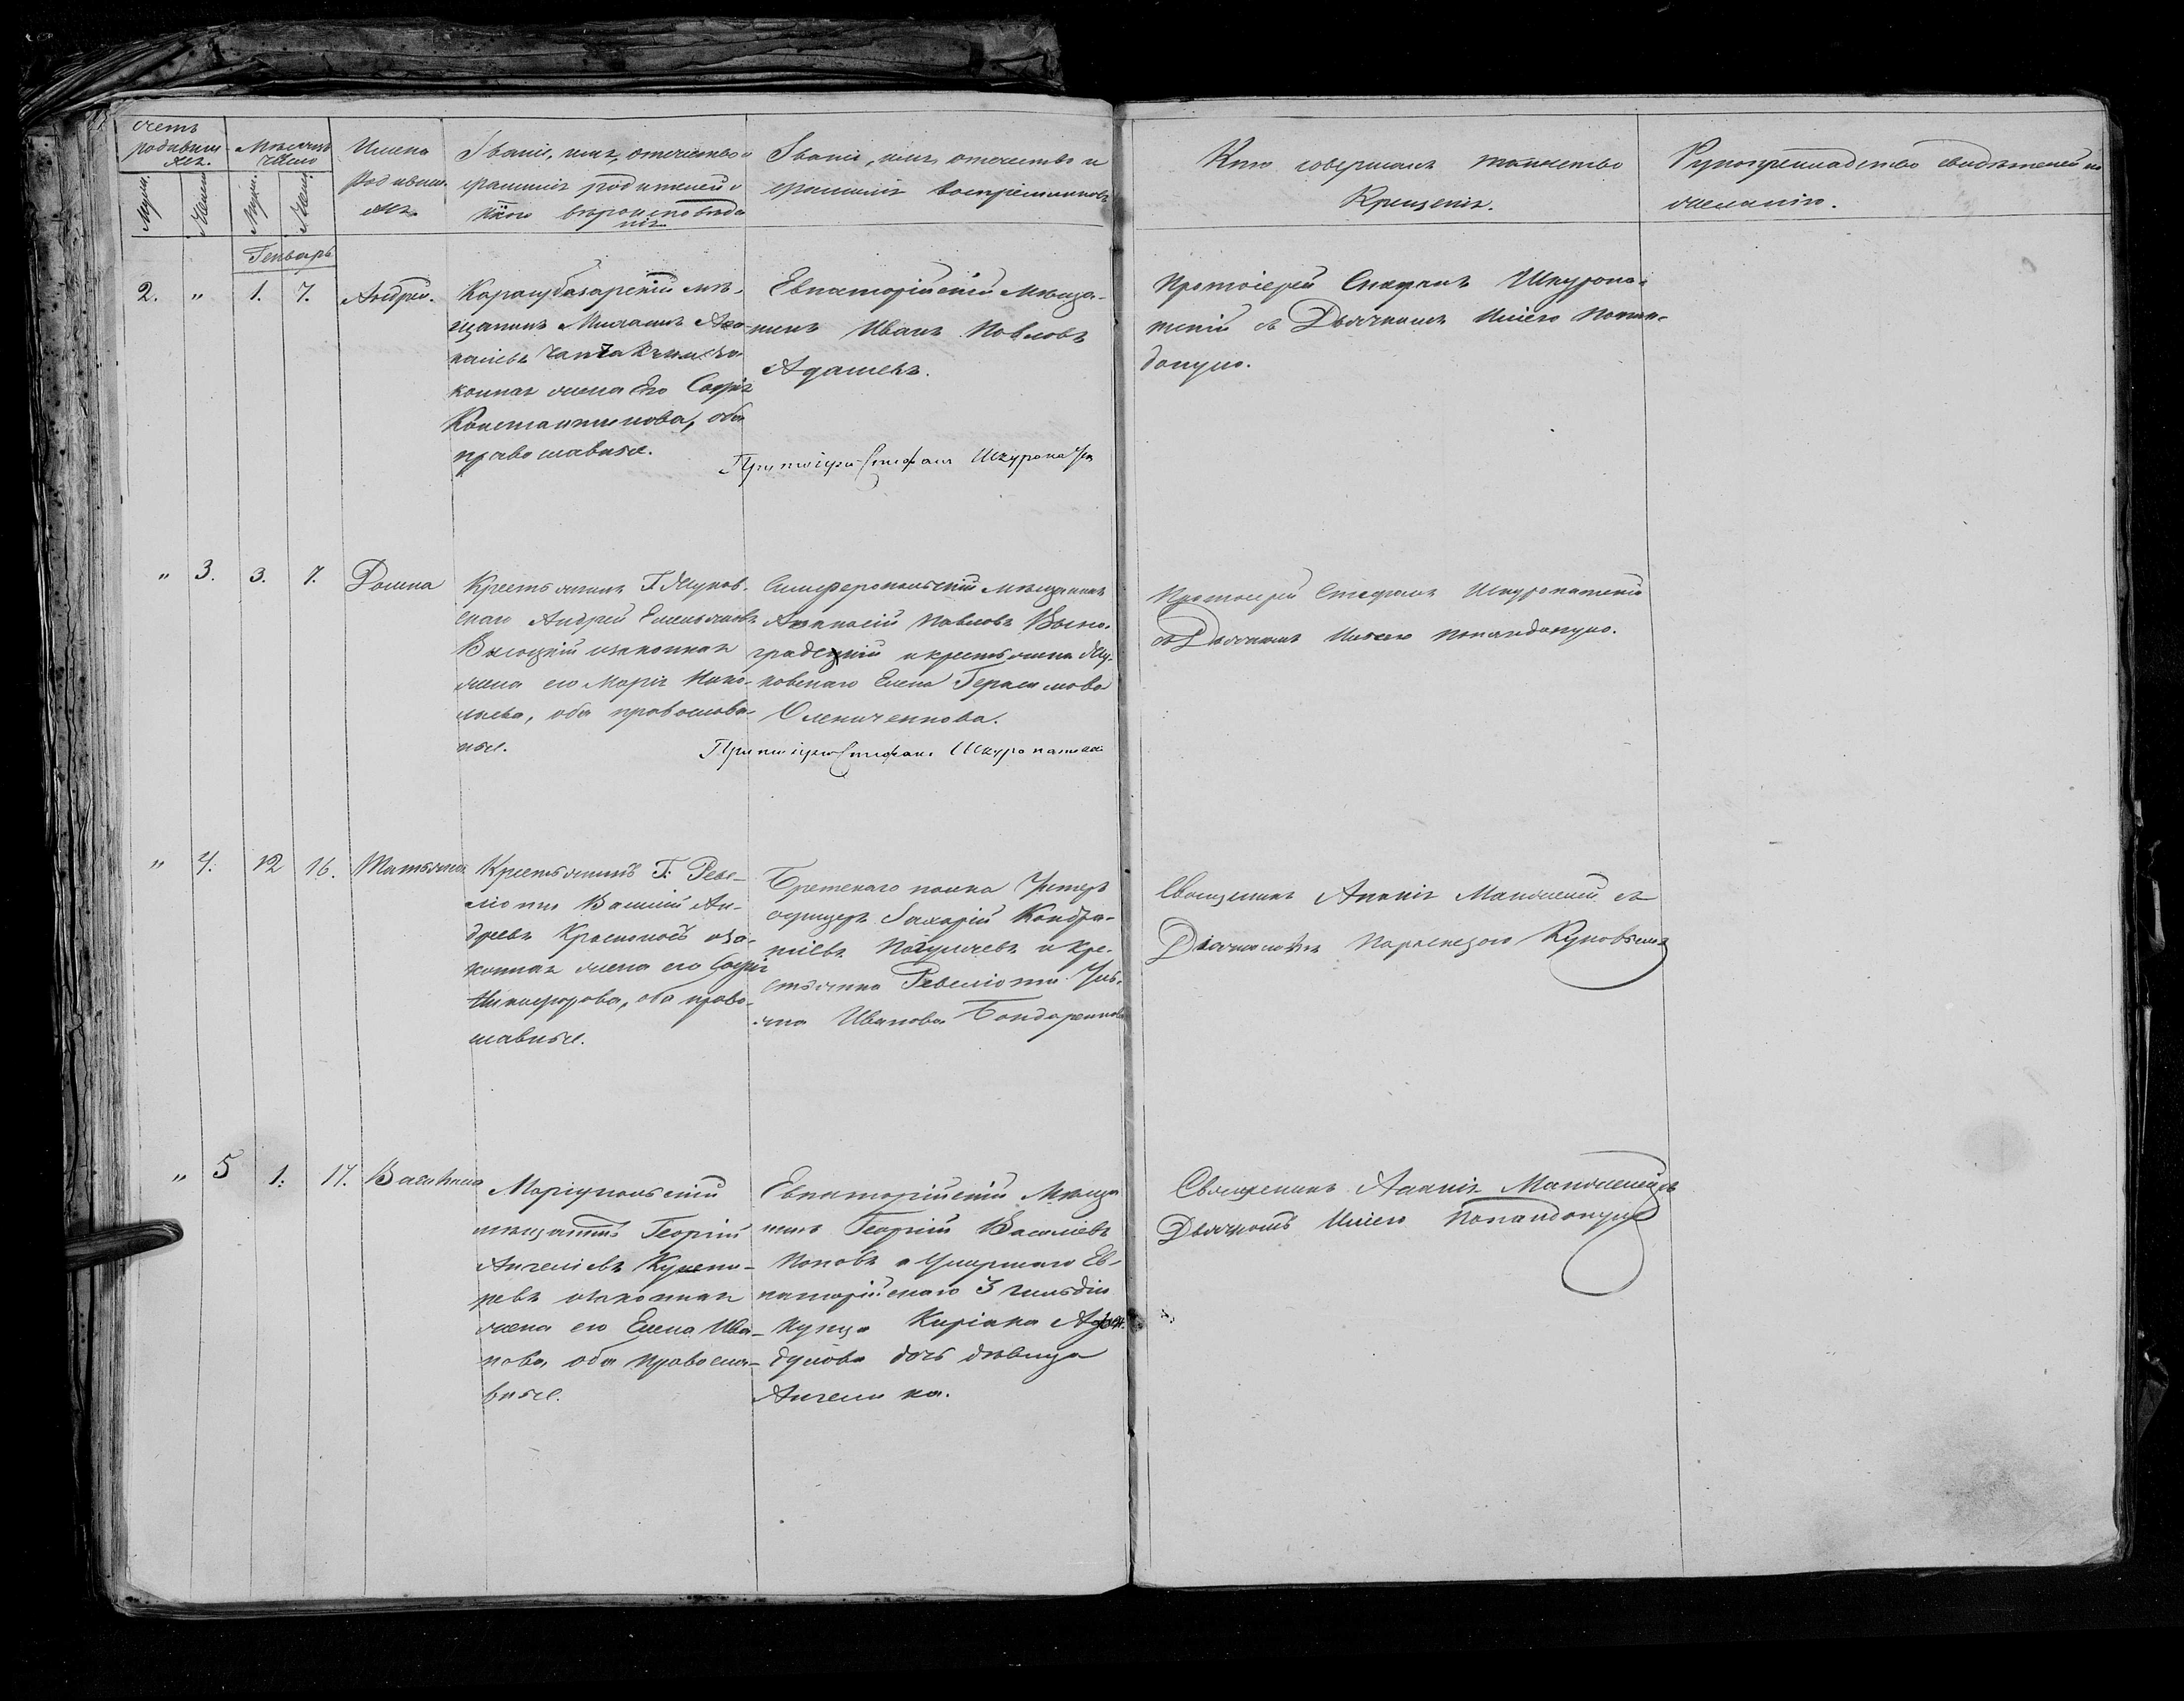 Счетъ
родивших
ся.
Муж.
Женс.
Мѣсяцъ
число
Муж.
Женс.
Имена
родивш.
ся.
Званіе, имя, отечество и
фамилія родителей и
какого вѣроисповѣда
нія.
Званіе, имя, отечество и
фамилія воспріемниковъ
Кто совершалъ таинство
Крещенія.
Рукоприкладство свидѣтелей по
желанію.
Генварь
2. " 1. 7. Андрей.
Карасубазарскій мѣ-
щанинъ Михаилъ Ана-
наіевъ законная жена Его Софія
Константинова, оба
православные.
Евпаторійскій Мѣща-
нинъ Иванъ Павловъ
Адамевъ.
Протоіерей Стефанъ Шкуропа-
тскій съ Дьячкомъ Иліею Попан-
допуло.
Протоіерей Стефанъ Шкуропа
" 3. 3. 7. Домна
Крестьянинъ Г. Жуков-
скаго Андрей Емельяновъ
Высоцкій и законная
жена его Марія Нико-
лаева, оба православ-
ные.
Симферопольскій мѣщанинъ
Афанасій Павловъ Вино-
градскій и крестьянка Жу-
ковскаго Елена Герасимова
Оленченкова.
Протоіерей Стефанъ Шкуропатскій
съ Дьячкомъ Иліею Попандопуло.
Протоіерей Стефанъ Шкуропатскій
" 4. 12 16. Татьяна
Крестьянинъ Г. Реве-
ліоти Василій Ан-
дреевъ Красновъ и за-
конная жена его Софія
Никифорова, оба право-
славные.
Бретскаго полка Унтеръ
офицеръ Захарій Кондра-
тіевъ и кре-
стьянка Ревеліоти Уль-
яна Иванова Бондаренкова
Священникъ Ананія Маковскій съ
Дьячкомъ
" 5 1. 17. Василиса
Маріупольскій
мѣщанинъ Георгій
Ангеліевъ
и законная
жена его Елена Ива-
нова, оба православ-
вные.
Евпаторійскій Мѣща
нинъ Георгій Василіевъ
Поповъ и умершаго Ев-
паторійскаго 3 гильдіи
купца Киріака
дочь дѣвица
Ангелика.
Священникъ Ананія Маковскій съ
Дьячкомъ Иліею Попандопуло